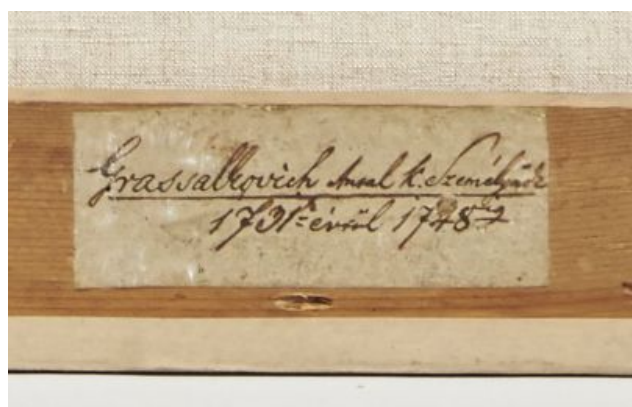 Grassalkovich Antal k. Személynök
1731ᵗ évről 1748ᵍ